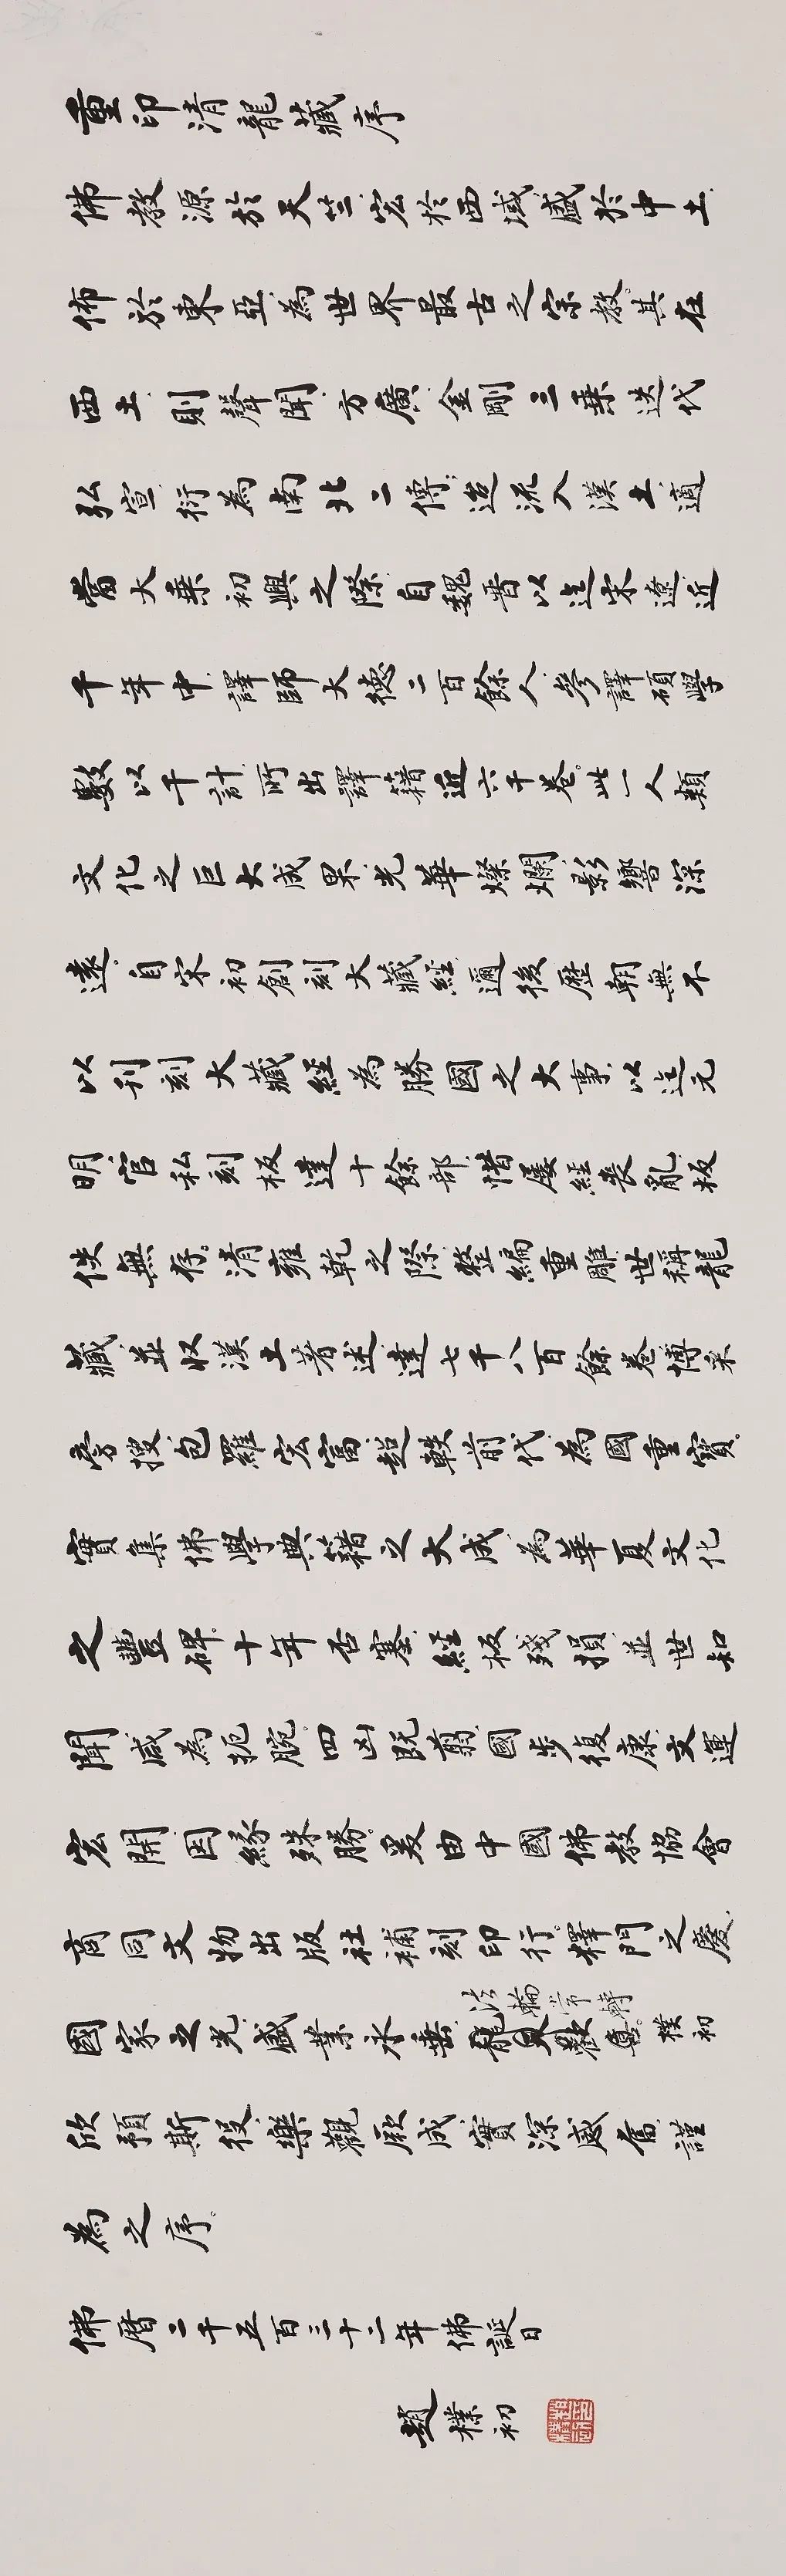 重印清龍藏序
佛教源於天竺宏於西域盛於中土
佈於東亞為世界最古之宗教其在
西土則聲聞方廣金剛三乘迭代
弘宣衍為南北二傳迨流入漢土適
當大乘初興之際自魏晉以迄宋遼近
千年中譯師大德二百餘人參譯碩學
數以千計所出譯籍近六千卷此一人類
文化之巨大成果光華燦爛影響深
遠自宋初創刻大藏經邇後歷朝無不
以刊刻大藏經為勝國之大事以迄元
明官私刻板達十餘部惜屢經喪亂板
佚無存清雍乾之際整編重雕世稱龍
藏並收漢土著述達七千八百餘卷博采
旁搜包羅宏富超軼前代為國重寶
實集佛學典籍之大成為華夏文化
之豐碑十年否塞經板殘損並世知
聞咸為扼腕四凶既翦國步復康文運
宏開因緣殊勝爰由中國佛教協會
商同文物出版社補刻印行釋門之慶
國家之光盛業永垂龍天歡喜樸初
法輪常轉
欣預斯役樂觀厥成實深感奮謹
為之序
佛曆二千五百三十二年佛誕日
趙樸初